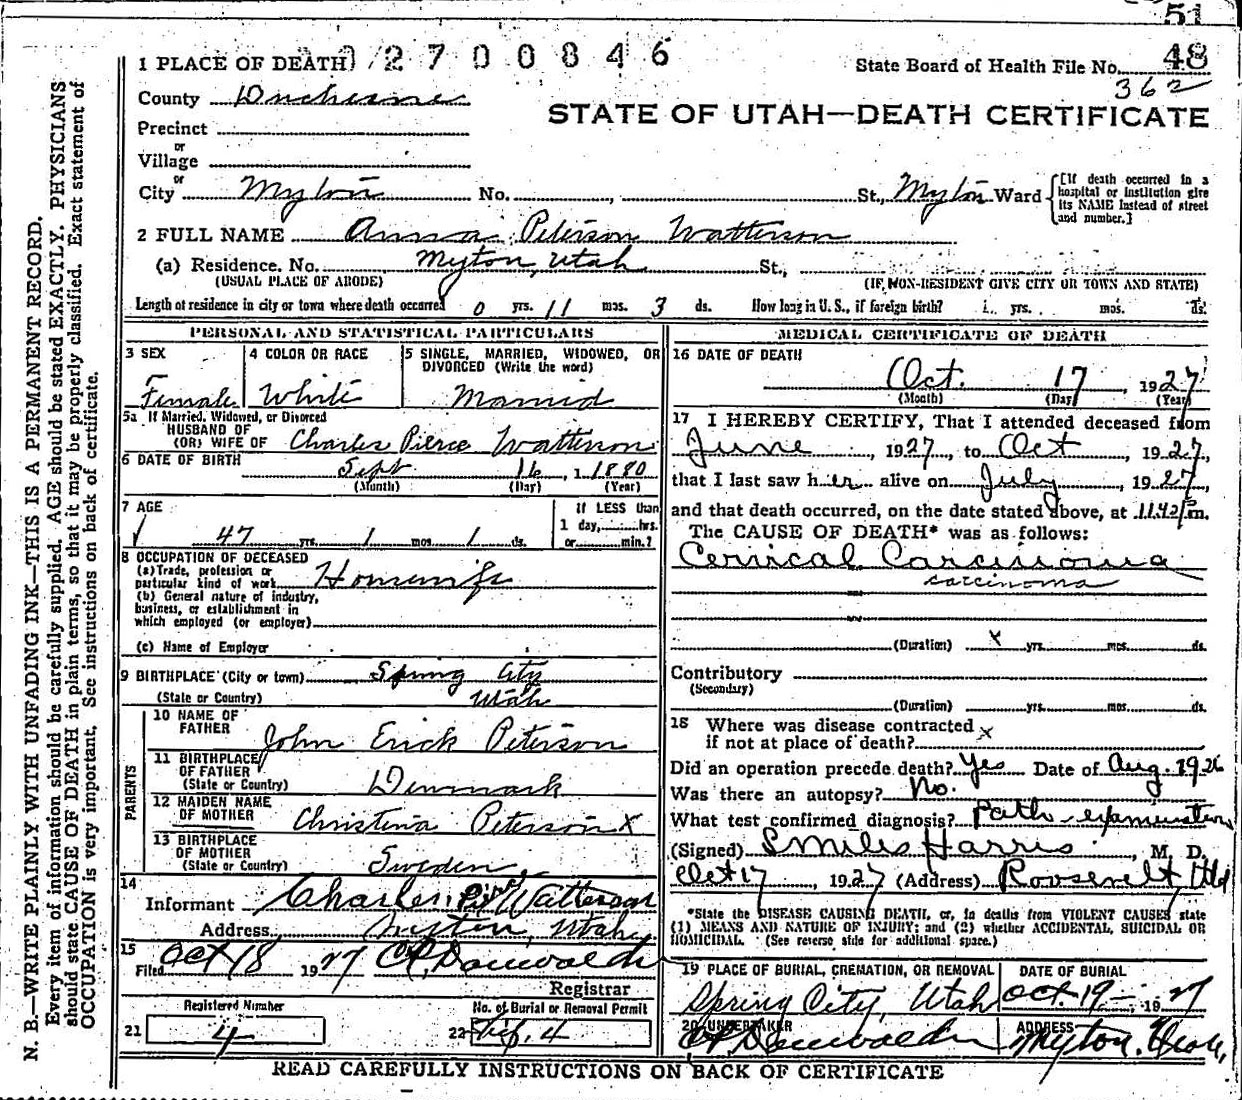 51
1 PLACE OF DEATH 2700846
State Board of Health File No. 48
362
County Duchesne
STATE OF UTAH—DEATH CERTIFICATE
Precinct
or
Village
or
City Myton No. , St., Myton Ward
[If death occurred in a hospital or institution give its NAME instead of street and number.]
2 FULL NAME Anna Peterson Watterson
(a) Residence. No. Myton, Utah St.,
(USUAL PLACE OF ABODE) (IF NON-RESIDENT GIVE CITY OR TOWN AND STATE)
Length of residence in city or town where death occurred 0 yrs. 11 mos. 3 ds. How long in U. S., if foreign birth? yrs. mos. ds.
PERSONAL AND STATISTICAL PARTICULARS
3 SEX
Female
4 COLOR OR RACE
White
5 SINGLE, MARRIED, WIDOWED, OR DIVORCED (Write the word)
Married
5a If Married, Widowed, or Divorced
HUSBAND OF
(OR) WIFE OF Charles Pierce Watterson
6 DATE OF BIRTH Sept 16, 1880
(Month) (Day) (Year)
7 AGE
47 yrs. 1 mos. 1 ds.
If LESS than
1 day, hrs.
or min.?
8 OCCUPATION OF DECEASED
(a) Trade, profession or
particular kind of work Housewife
(b) General nature of industry,
business, or establishment in
which employed (or employer)
(c) Name of Employer
9 BIRTHPLACE (City or town) Spring City
(State or Country) Utah
PARENTS
10 NAME OF
FATHER John Erick Peterson
11 BIRTHPLACE
OF FATHER
(State or Country) Denmark
12 MAIDEN NAME
OF MOTHER Christina Peterson x
13 BIRTHPLACE
OF MOTHER
(State or Country) Sweden
14
Informant Charles Watterson
Address Myton, Utah
15
Filed Oct 18 1927
Registrar
Registered Number
21 4
No. of Burial or Removal Permit
22 4
MEDICAL CERTIFICATE OF DEATH
16 DATE OF DEATH
Oct. 17 1927
(Month) (Day) (Year)
17 I HEREBY CERTIFY, That I attended deceased from
June , 1927, to Oct , 1927,
that I last saw her alive on July , 1927,
and that death occurred, on the date stated above, at 11:42 p m.
The CAUSE OF DEATH* was as follows:
Cervical Carcinoma
carcinoma
(Duration) x yrs. mos. ds.
Contributory
(Secondary)
(Duration) yrs. mos. ds.
18 Where was disease contracted x
if not at place of death?
Did an operation precede death? Yes Date of Aug. 1926
Was there an autopsy? No.
What test confirmed diagnosis? Path examination
(Signed) Miles Harris , M. D.
Oct 17 , 1927 (Address) Roosevelt, Utah
*State the DISEASE CAUSING DEATH, or, in deaths from VIOLENT CAUSES, state
(1) MEANS AND NATURE OF INJURY; and (2) whether ACCIDENTAL, SUICIDAL OR
HOMICIDAL. (See reverse side for additional space.)
19 PLACE OF BURIAL, CREMATION, OR REMOVAL
Spring City, Utah
DATE OF BURIAL
Oct. 19 1927
20 UNDERTAKER
ADDRESS
Myton,
READ CAREFULLY INSTRUCTIONS ON BACK OF CERTIFICATE
N. B.—WRITE PLAINLY WITH UNFADING INK—THIS IS A PERMANENT RECORD.
Every item of information should be carefully supplied. AGE should be stated EXACTLY. PHYSICIANS
should state CAUSE OF DEATH in plain terms, so that it may be properly classified. Exact statement of
OCCUPATION is very important. See instructions on back of certificate.